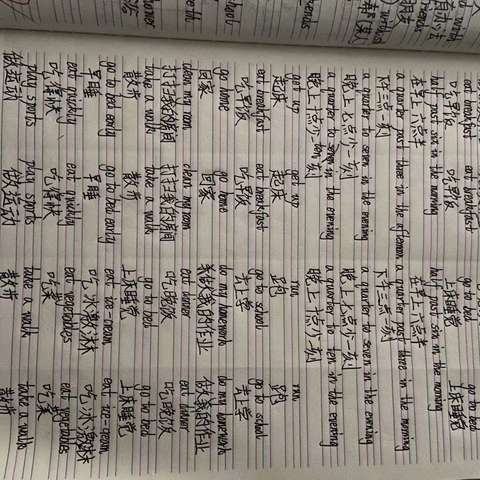 eat breakfast eat breakfast go to bed go to bed
吃早饭 吃早饭 上床睡觉 上床睡觉
half past six in the morning half past six in the morning
在早上六点半 在早上六点半
a quarter past three in the afternoon a quarter past three in the morning
下午三点一刻 下午三点一刻
a quarter to seven in the evening a quarter to seven in the evening
晚上七点少一刻 晚上七点少一刻
a quarter to ten in the evening a quarter to ten in the evening
晚上十点少一刻 晚上十点少一刻
get up get up run run
起床 起床 跑 跑
eat breakfast eat breakfast go to school go to school
吃早饭 吃早饭 去上学 去上学
go home go home do my homework do my homework
回家 回家 做我的作业 做我的作业
clean my room clean my room eat dinner eat dinner
打扫我的房间 打扫我的房间 吃晚饭 吃晚饭
take a walk take a walk go to bed go to bed
散步 散步 上床睡觉 上床睡觉
go to bed early go to bed early eat ice-cream eat ice-cream
早睡 早睡 吃冰激淋 吃冰激淋
eat quickly eat quickly eat vegetables eat vegetables
吃得快 吃得快 吃菜 吃菜
play sports play sports take a walk take a walk
做运动 做运动 散步 散步